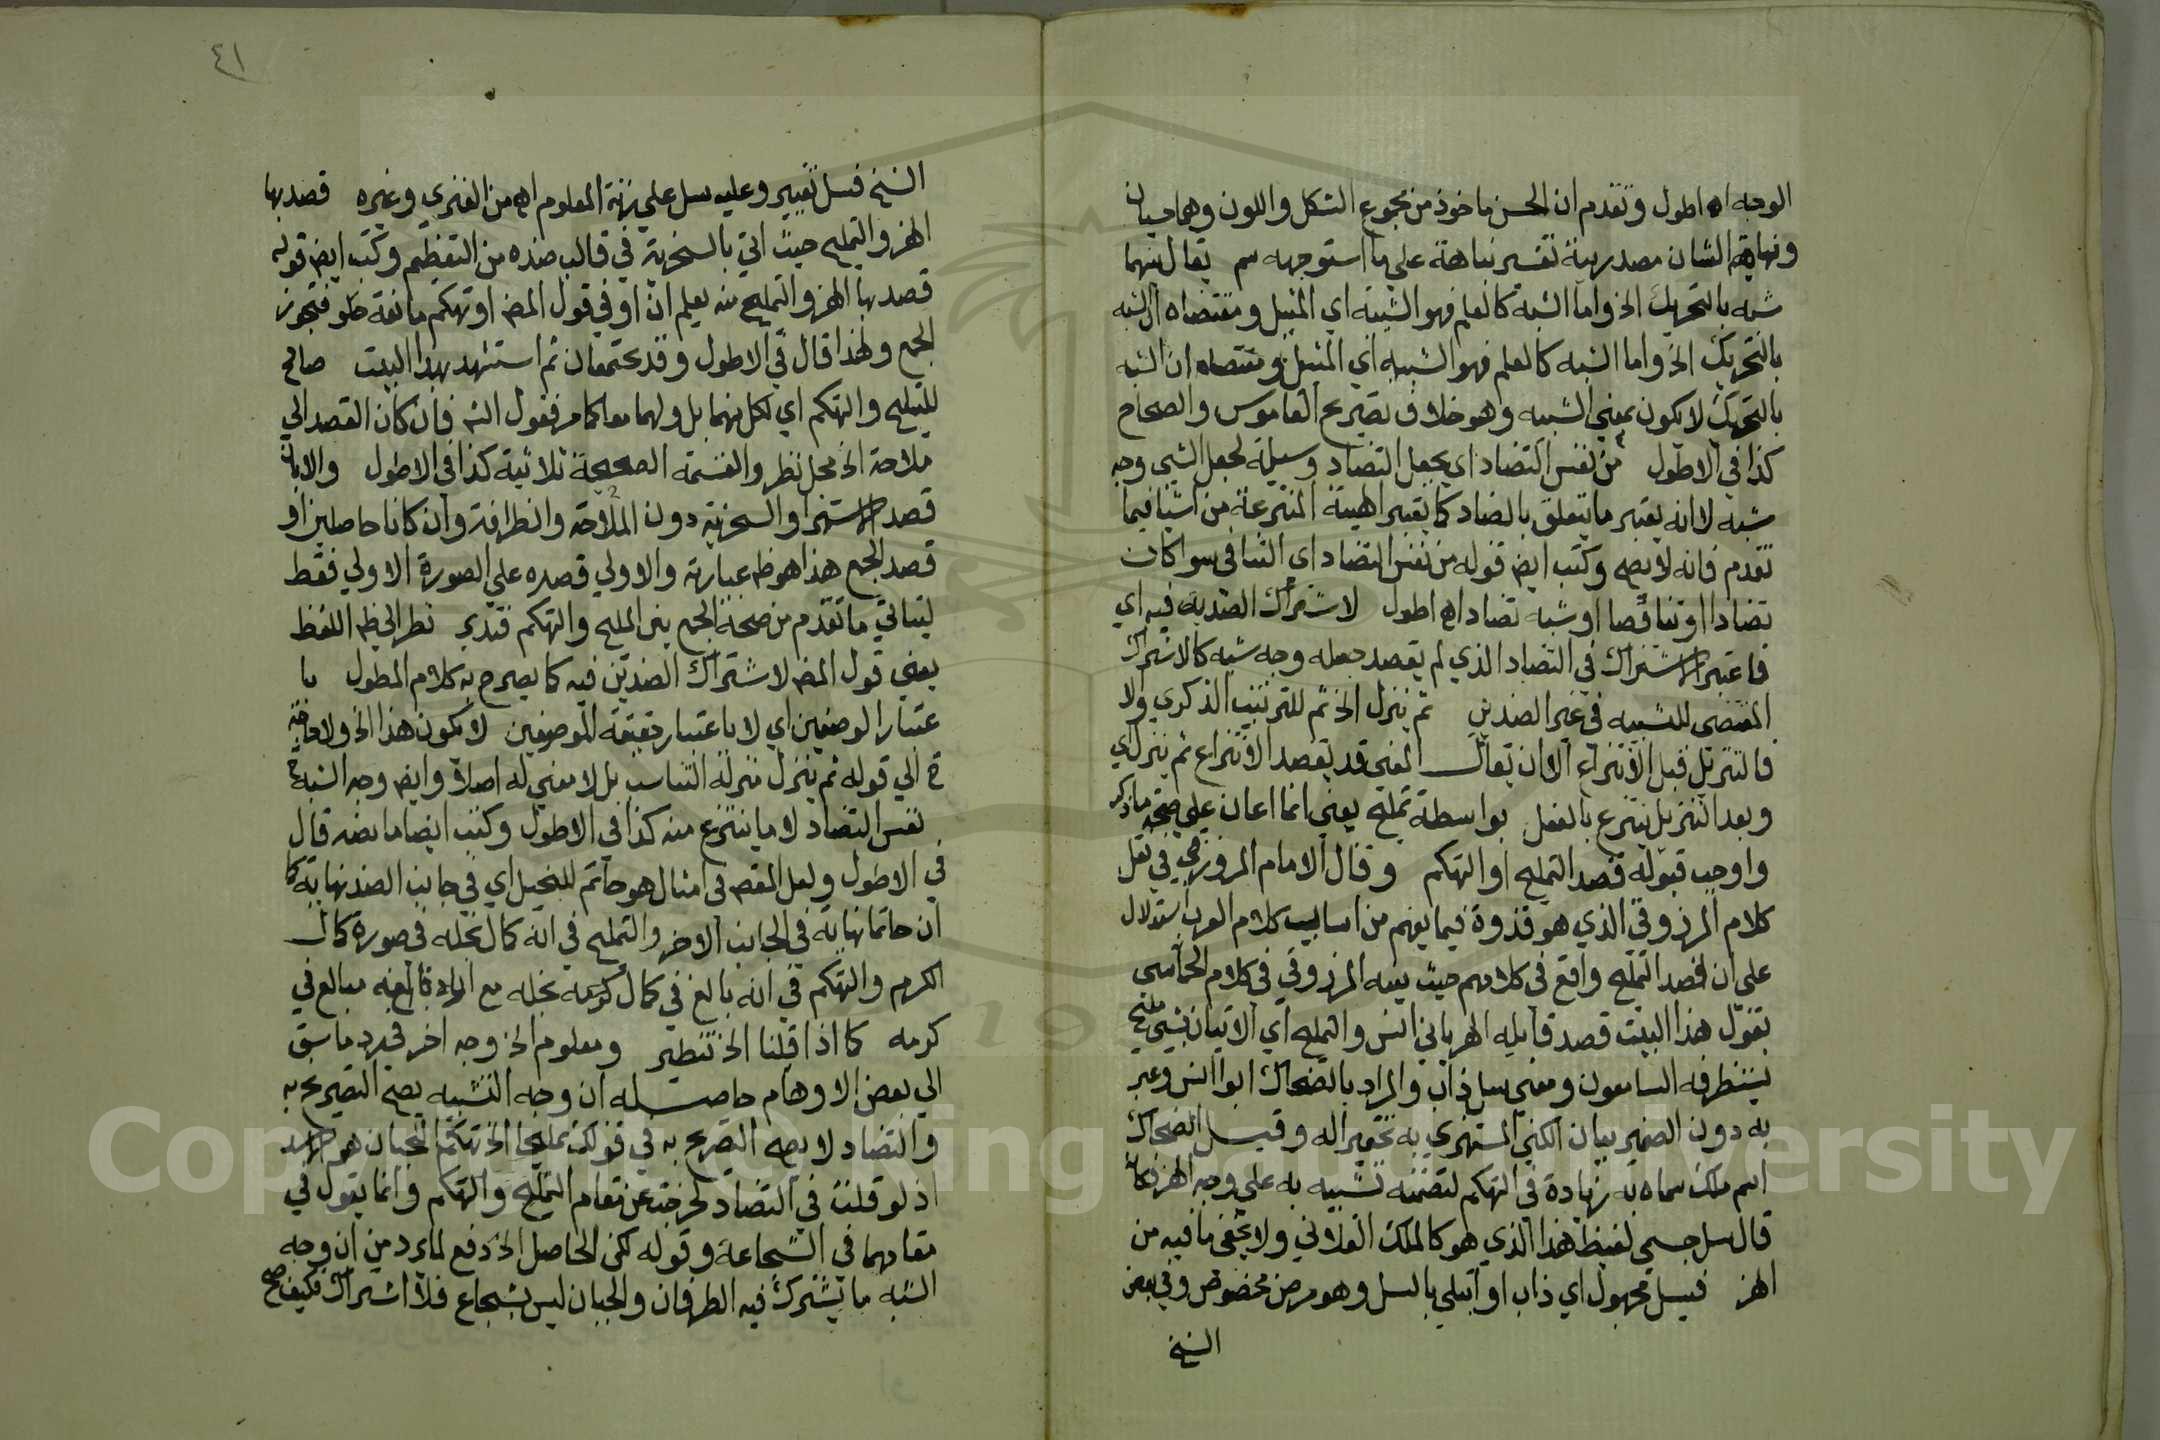 الوجه اه اطول وتقدم ان الحسن ماخوذ من مجموع الشكل واللون وهما حسيان
ونباهة الشان مصدر نبه تفسر نباهة علي ما استوجهه سم يقال بينهما
شبه بالتحريك الخ واما الشبه كالعلم فهو الشبيه اي المثيل ومقتضاه ان الشبه
بالتحريك الخ واما الشبه كالعلم فهو الشبيه اي المثيل ومقتضاه ان الشبه
بالتحريك لا يكون بمعني الشبيه وهو خلاف تصريح القاموس والصحاح
كذا في الاطول من نفس التضاد اي يجعل التضاد وسيلة لجعل الشي وجه
شبه لا انه يعتبر ما يتعلق بالضاد كما يعتبر الهيئة المنتزعة من اشيا فيما
تقدم فانه لا يصح وكتب ايضا قوله من نفس التضاد اي التنافي سوا كان
تضادا او تناقضا او شبه تضاد اه اطول لاشتراك الضدين فيه اي
فاعتبر الاشتراك في التضاد الذي لم يقصد جعله وجه شبه كالاشتراك
المقتضى للتشبيه في غير الضدين ثم ينزل الخ ثم للترتيب الذكري والا
فالتنزيل قبل الانتزاع الا ان يقال المعني قد يقصد الانتزاع ثم ينزل اي
وبعد التنزيل ينتزع بالفعل بواسطة تمليح يعني انما اعان علي صحته ما ذكر
واوجب قبوله قصد التمليح او التهكم وقال الامام المرزوقي في نقل
كلام المرزوقي الذي هو قدوة فيما يفهم من اساليب كلام العرب استدلال
على ان قصد التمليح واقع في كلامهم حيث بينه المرزوقي في كلام الحماسي
بقوله هذا البيت قصد قايله الهزء بابي انس والتمليح اي الاتيان بشي مليح
يستظرفه السامعون ومعني سل ذاب والمراد بالضحاك ابو انس وعبر
به دون الضمير بيان الكني المستهزي به تحقيرا له وقيل الضحاك
اسم ملك سماه به زيادة في التهكم لتضمنه تشبيهه به علي وجه الهزء فكانه
قال سل جسمي لغيظ هذا الذي هو كالملك الفلاني ولا يخفى ما فيه من
الهزء فسل مجهول اي ذاب او ابتلي بالسل وهو مرض مخصوص وفي بعض
النسخ
٤١
النسخ فسل تغيير وعليه سل علي زنة المعلوم اه من الفنري وغيره قصد بها
الهزء والتمليح حيث اتي بالسخرية في قالب ضده من التعظيم وكتب ايضا قوله
قصد بها الهزء والتمليح منه يعلم ان او في قول المص او تهكم مانعة خلو فتجوز
الجمع ولهذا قال في الاطول وقد يجتمعان ثم استشهد بهذا البيت صالح
للتمليح والتهكم اي لكل منهما بل ولهما معا كما مر فقول الش فان كان القصد الي
ملاحة الخ محل نظر والقسمة الصحيحة ثلاثية كذا في الاطول والا بان
قصد الاستهزا والسخرية دون الملاحة والظرافة وان كانا حاصلين او
قصد الجمع هذا هو ظ عبارته والاولي قصره علي الصورة الاولي فقط
ليتاتي ما تقدم من صحة الجمع بين المليح والتهكم فتدبر نظر الي ظ اللفظ
يعني قول المص لاشتراك الضدين فيه كما يصرح به كلام المطول با
عتبار الوصفين اي لا باعتبار حقيقة الموصوفين لا يكون هذا الخ ولا حاجة
ح الي قوله ثم ينزل منزلة التناسب بل لا معني له اصلا وايضا وجه الشبه ح
نفس التضاد لا ما ينتزع منه كذا في الاطول وكتب ايضا ما نصه قال
في الاطول ولعل المقص في امثال هو حاتم للبخيل اي في جانب الضد نهاية كما
ان حاتما نهاية في الجانب الاخر والتمليح في انه كمال بخله في صورة كمال
الكرم والتهكم في انه بالغ في كمال كرمه بخله مع مبالغ في
كرمه كما اذا قلنا الخ تنظير ومعلوم الخ وجه اخر في رد ما سبق
الي بعض الاوهام حاصله ان وجه التشبيه يصح التصريح به
والتضاد لا يصح التصريح به في قولك تمليحا او تهكما للجبان هو اسد
اذ لو قلت في التضاد لخرجت عن مقام التمليح والتهكم وانما يقول في
مقامهما في الشجاعة وقوله لكن الحاصل الخ دفع لما يرد من ان وجه
الشبه ما يشترك فيه الطرفان والجبان ليس بشجاع فلا اشتراك فكيف صح